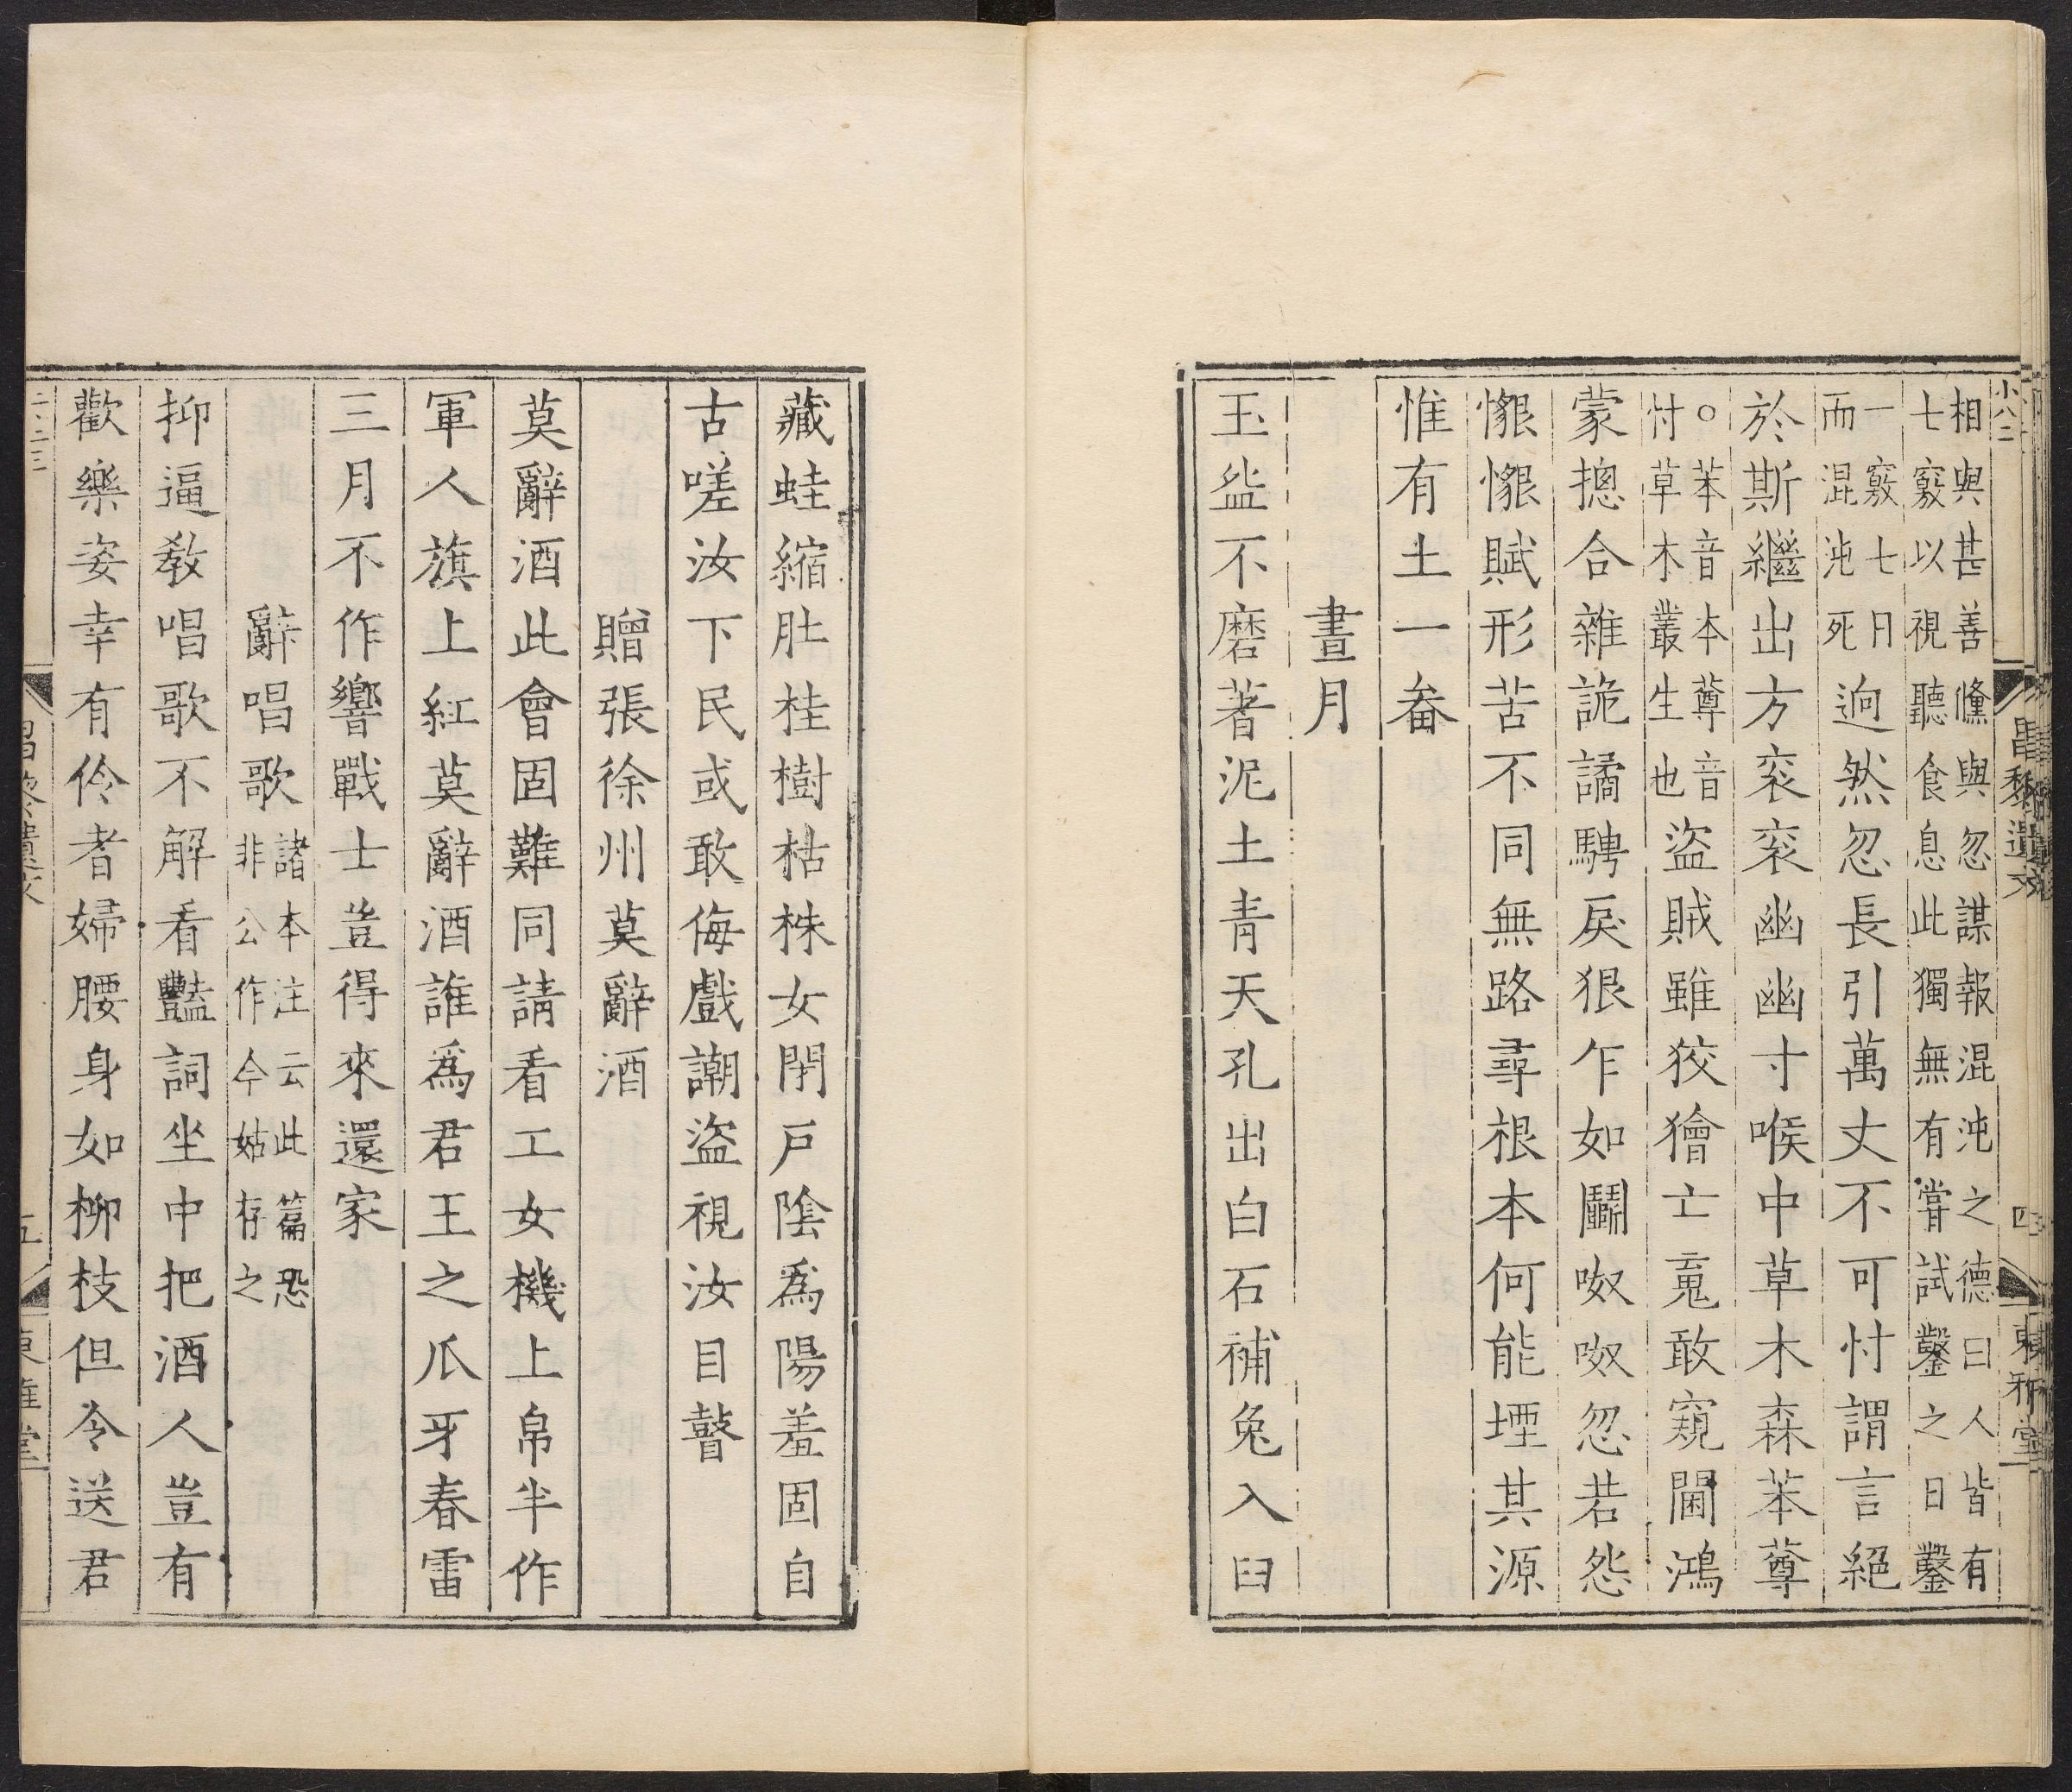 相與甚善儵與忽謀報混沌之德曰人皆有
七竅以視聽食息此獨無有嘗試鑿之日鑿
一竅七日
而混沌死
逈然忽長引萬丈不可忖謂言絕
於斯繼出方衮衮幽幽寸喉中草木森苯䔿
○苯音本䔿音
忖草木叢生也
盜賊雖狡獪亡䰟敢窺閫鴻
蒙摠合雜詭譎騁戾狠乍如鬬呶呶忽若怨
懇懇賦形苦不同無路尋根本何能堙其源
惟有土一畚
晝月
玉盌不磨著泥土青天孔出白石補兔入臼
藏蛙縮肚桂樹枯株女閉戶陰爲陽羞固自
古嗟汝下民或敢侮戲謿盜視汝目瞽
贈張徐州莫辭酒
莫辭酒此會固難同請看工女機上帛半作
軍人旗上紅莫辭酒誰爲君王之爪牙春雷
三月不作響戰士豈得來還家
辭唱歌
諸本注云此篇恐
非公作今姑存之
抑逼教唱歌不解看豔詞坐中把酒人豈有
歡樂姿幸有伶者婦腰身如柳枝但令送君
昌黎遺文
四
東雅堂
五